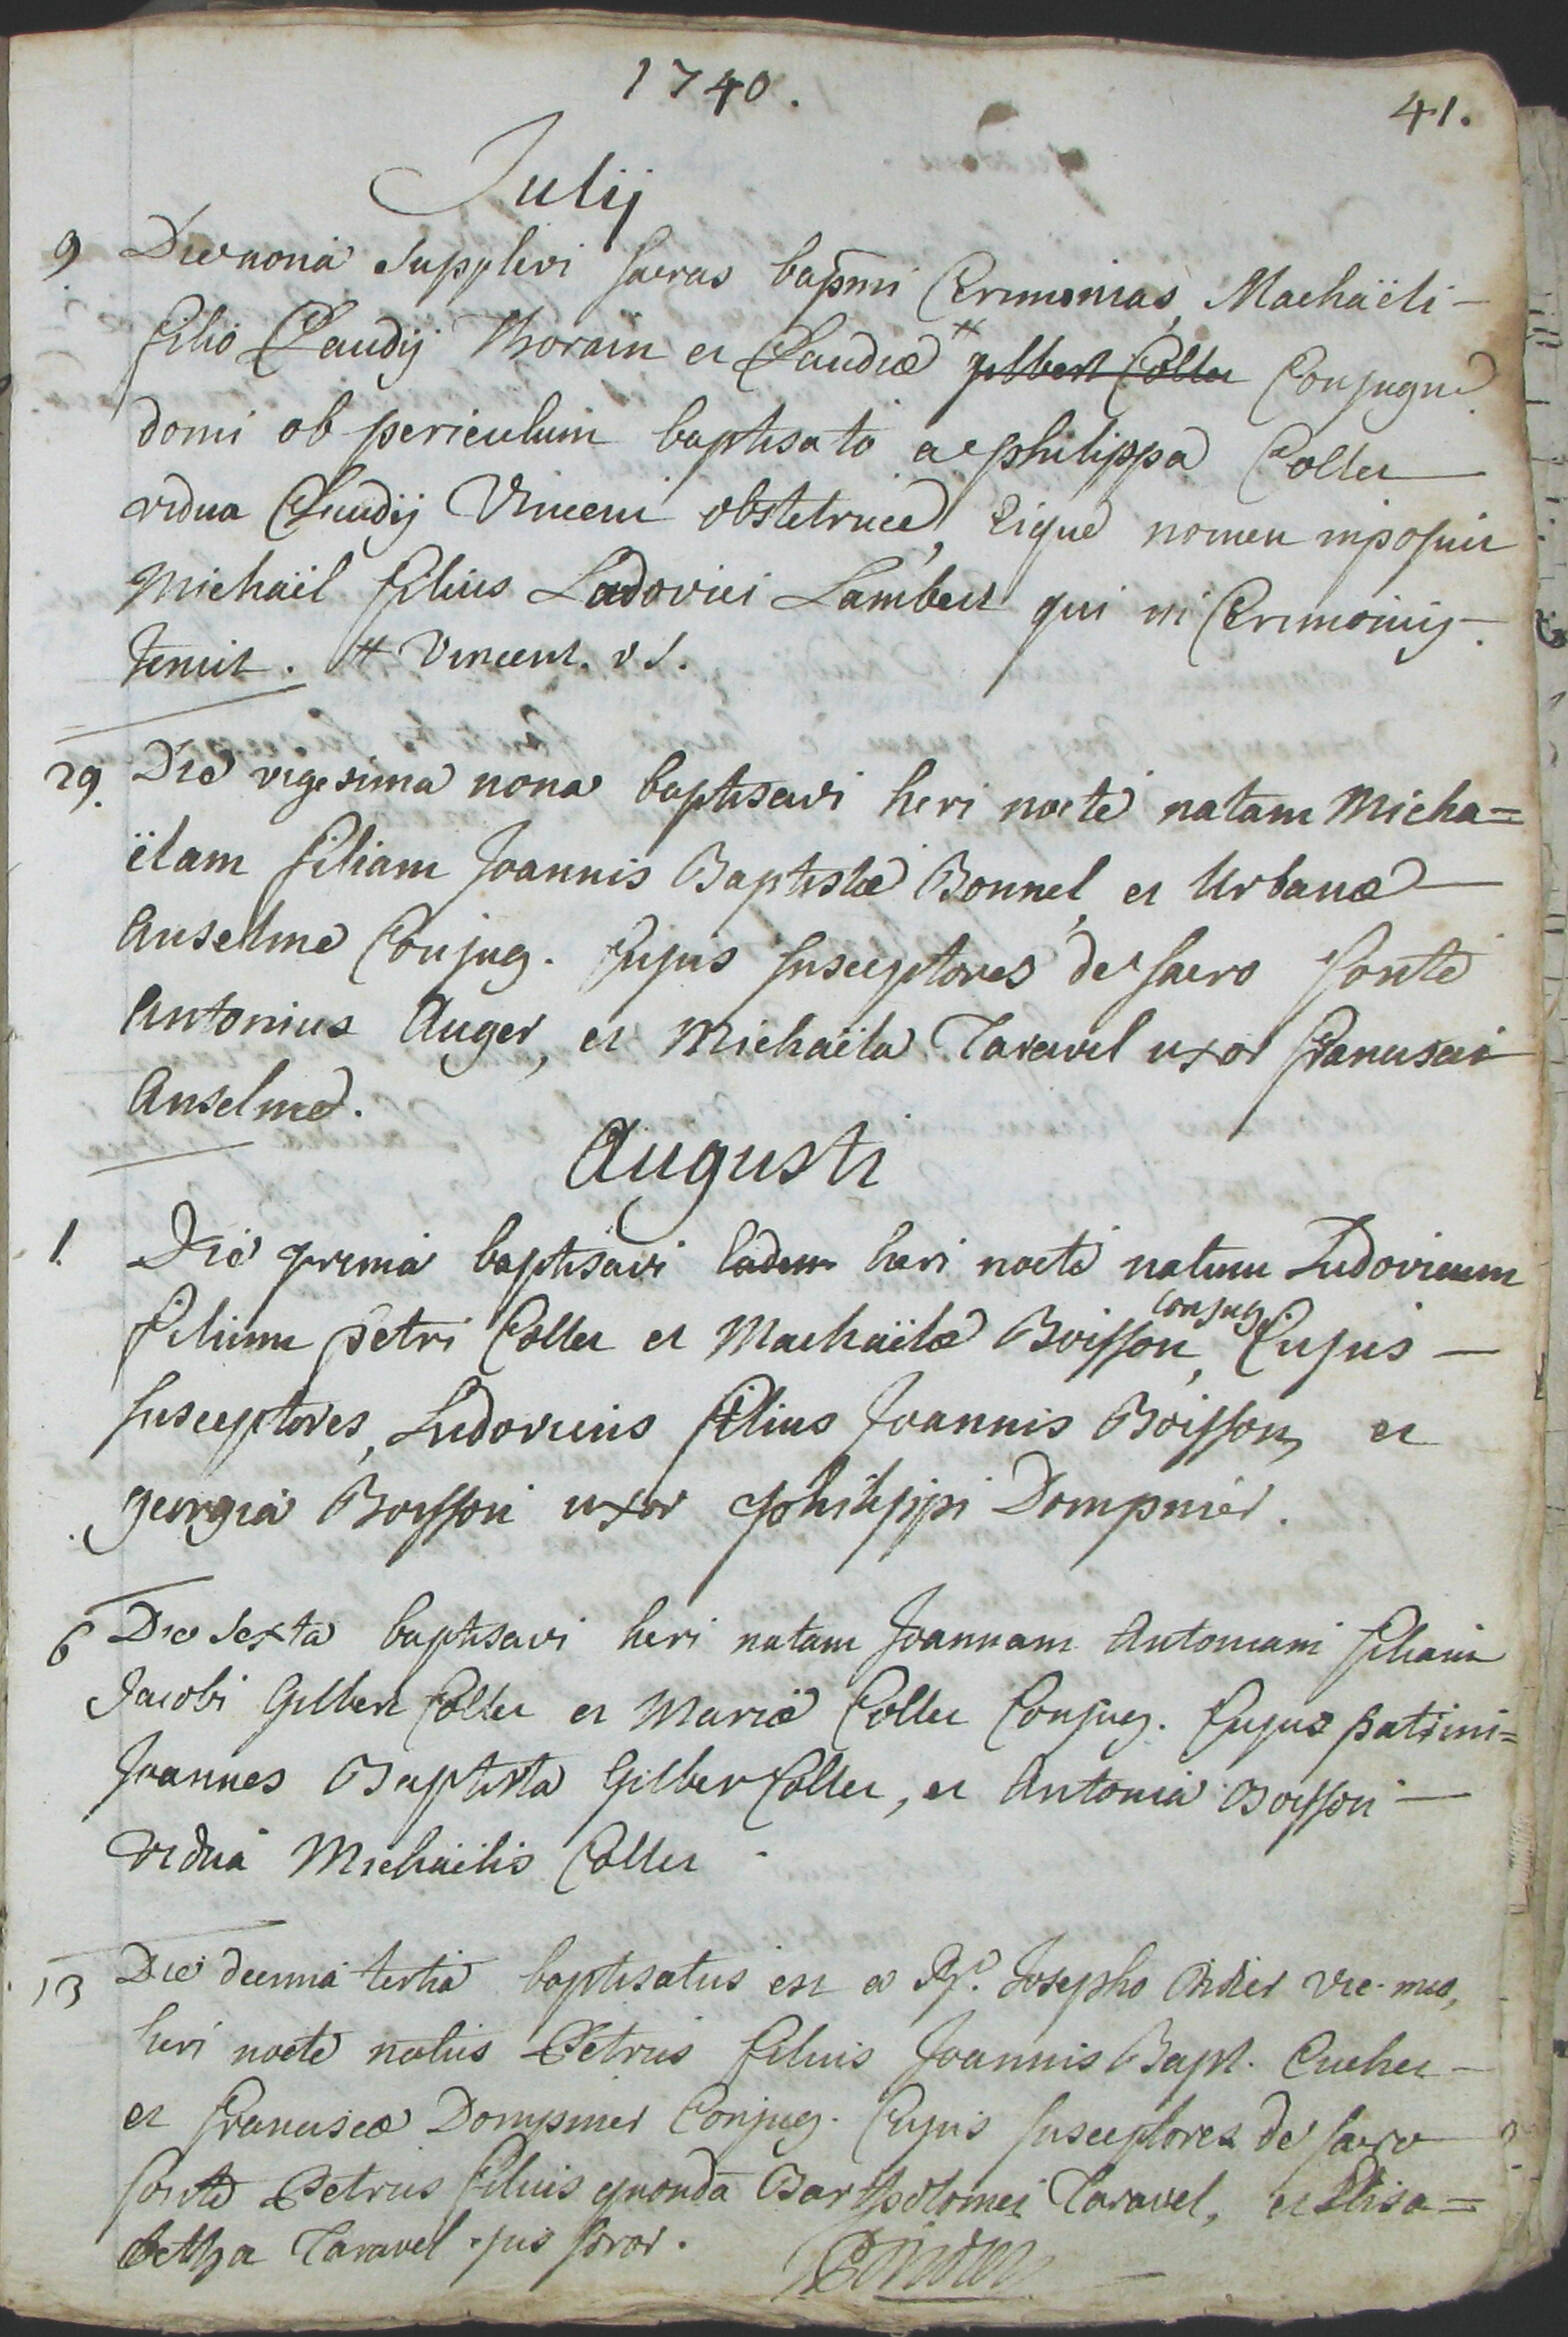 1740.
41.
Julij
9 Die nona supplevi sacras bapmi Cerimonias, Machaëli-
filio Claudij Thorain et Claudiæ # gilbert Collet Conjugu
domi ob periculum baptisato a philippa Collet
vidua Claudij Vincent obstetrice, eique nomen inposuit
Michaël filius Ludovici Lambert qui in Cerimoniis
tenuit. # Vincent. v s.
29. Die vigesima nona baptisavi heri nocte natam Micha=
ëlam filiam Joannis Baptistæ Bonnel, et Urbanæ
Anselme Conjug. Cujus susceptores de sacro fonte
Antonius Auger, et Michaëla Taravel uxor francisci
Anselme.
Augusti
1. Die prima baptisavi eadem heri nocte natum Ludovicum
filium petri Collet et Machaëlæ Boisson, conjug. Cujus -
susceptores, Ludovicus filius Joannis Boisson, et
georgia Boisson uxor philippi Dompnier.
6 Die sexta baptisavi heri natam Joannam Antoniam filiam
Jacobi Gilbert Collet et Mariæ Collet Conjug. Cujus patrini=
Joannes Baptista Gilbert Collet, et Antonia Boisson -
vidua Michaëlis Collet.
13 Die decima tertia baptisatus est a Rd. Josepho Didier vic. meo,
heri nocte natus Petrus filius Joannis Bapt. Cuchet -
et franciscæ Dompnier Conjug. Cujus susceptores de sacro
fonte Petrus filius quondā Bartholomei Taravel, et Elisa=
betha Taravel ejus soror.